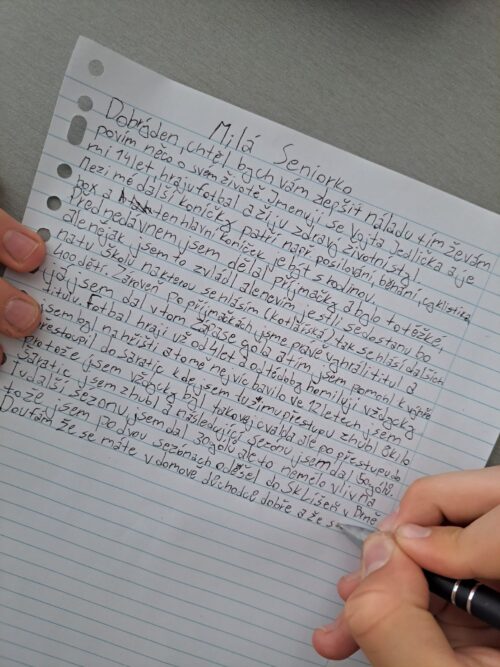 Milá Seniorko
Dobrýden, chtěl bych vám zepšit náladu tím ževám
povím něco o svém životě. Jmenuji se Vojta Jedlička a je
mi 14let, hraju fotbal a žiju zdravý životní styl
Mezi mé další koníčky patří např. posilování, běhání, cyklistika
box a ten hlavní koníček je být s rodinou.
Před nedávnem jsem dělal přijímačky a bylo to těžké,
ale nejak jsem to zvládl ale nevim jestli se dostanu bo
na tu školu na kterou se hlásím (kotlářská) tak se hlási dalších
400 dětí. Zároveň po přijímačkách jsme právě vyhráli titul a
já jsem dal v tom zápase gola a tím jsem pomohl k výhře
titulu. Fotbal hraji už od 4let a od té doby ho miluji vždycky
jsem byl na hřišti a to mě nejvíc bavilo ve 12 letech jsem
přestoupil do Saratic kde jsem tu zimu přestupu zhubl 6kilo
Protože jsem vždycky byl takovej cvalda ale po přestupu do
Šaratic jsem zhubl a následující sezonu jsem dal 30gólů.
Tu další sezonu jsem dal 30gólu ale to nemělo vliv na
tože jsem po dvou sezonách odešel do SK Líšeň v Brně
Doufám že se máte v domově důchodců dobře a že s